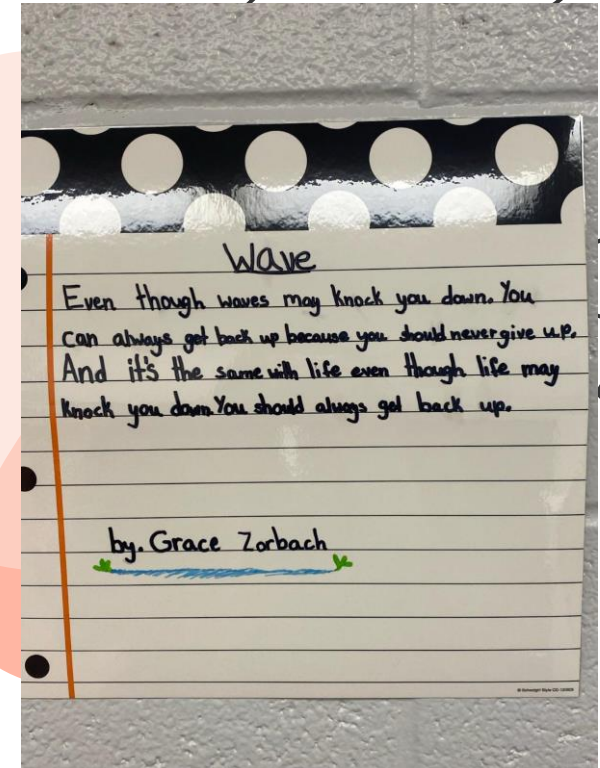 Wave
Even though waves may knock you down. You
can always get back up because you should never give up.
And it's the same with life even though life may
knock you down. You should always get back up.
by. Grace Zorbach